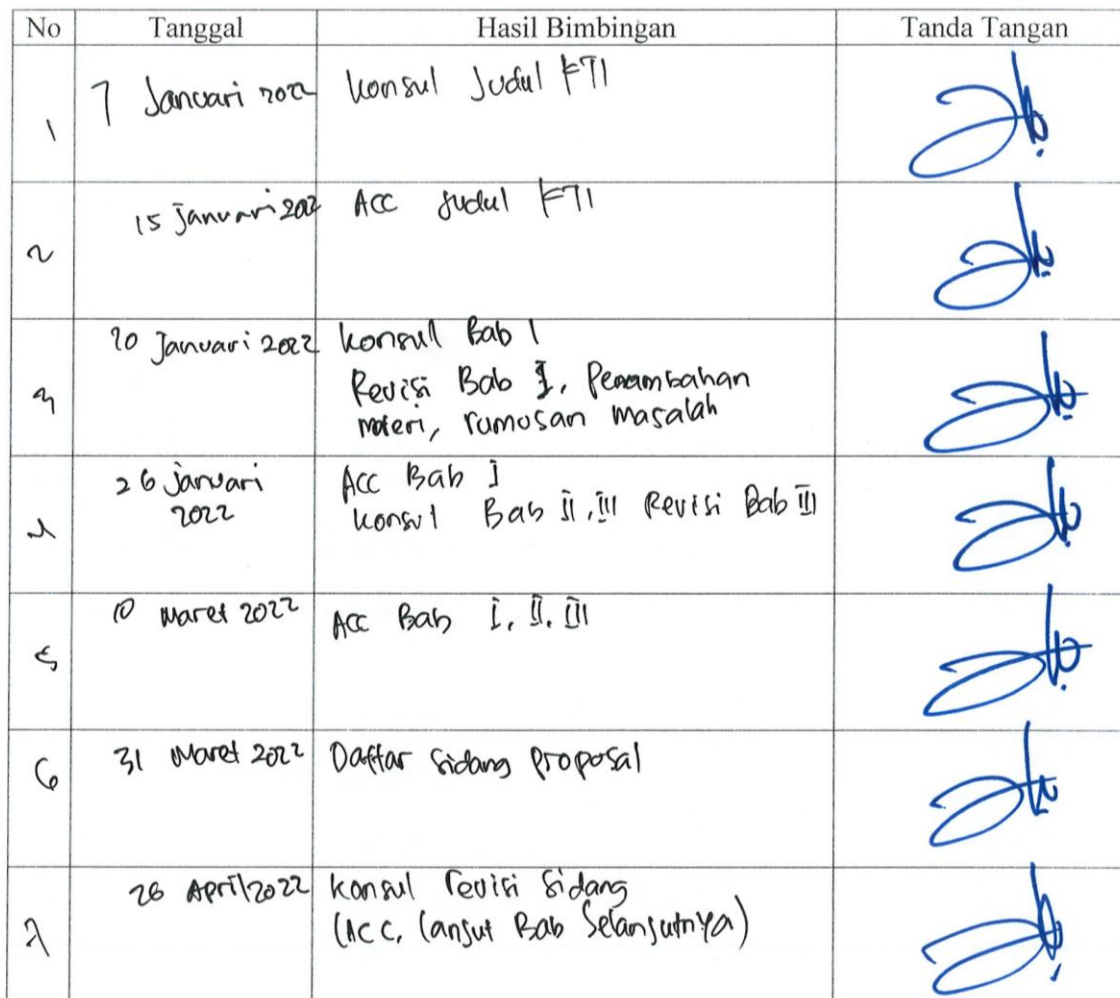 No Tanggal Hasil Bimbingan Tanda Tangan
1 7 Januari 2022 Konsul Judul KTI
2 15 Januari 2022 ACC Judul KTI
3 20 Januari 2022 Konsul Bab I
Revisi Bab I, Penambahan
materi, rumusan masalah
4 26 Januari
2022
ACC Bab I
Konsul Bab II, III Revisi Bab III
5 10 Maret 2022 ACC Bab I, II, III
6 31 Maret 2022 Daftar Sidang Proposal
7 April 2022 Konsul revisi Sidang
(ACC, lanjut Bab Selanjutnya)